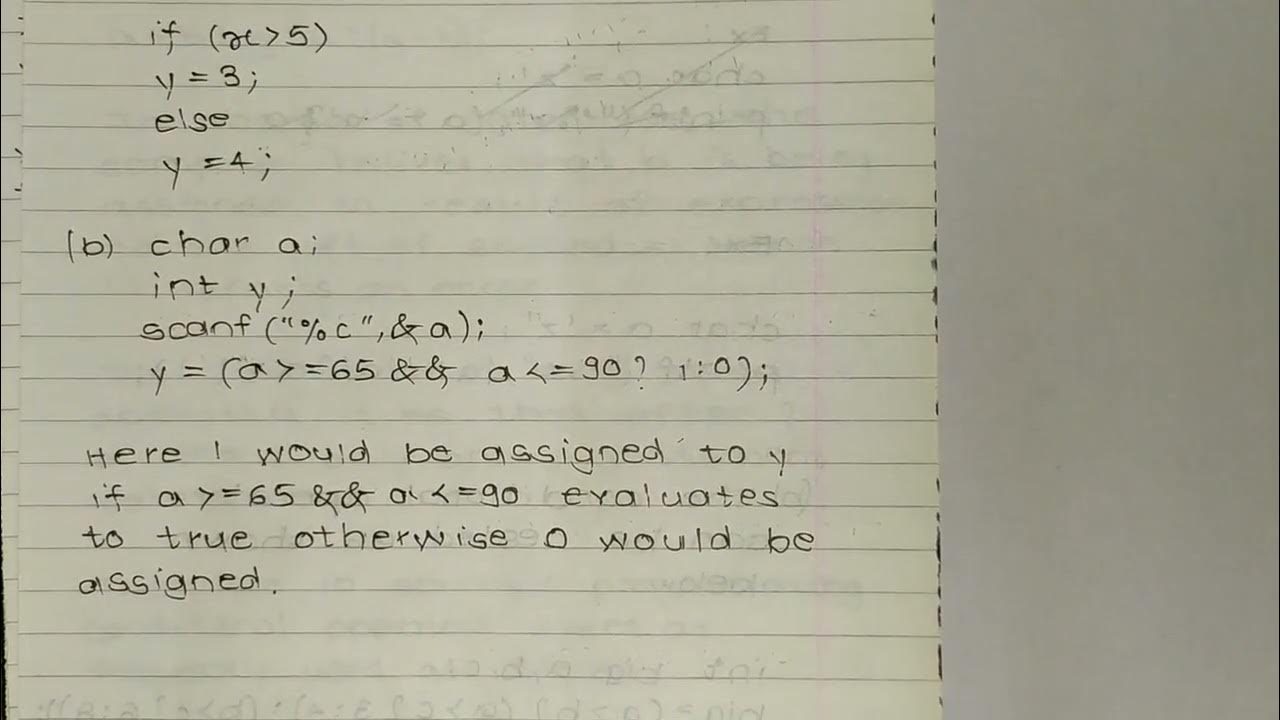 if (x>5)
y = 3;
else
y = 4;
(b) char a;
int y;
scanf("%c", &a);
y = (a>=65 && a<=90? 1:0);
Here 1 would be assigned to y
if a>=65 && a<=90 evaluates
to true otherwise 0 would be
assigned.